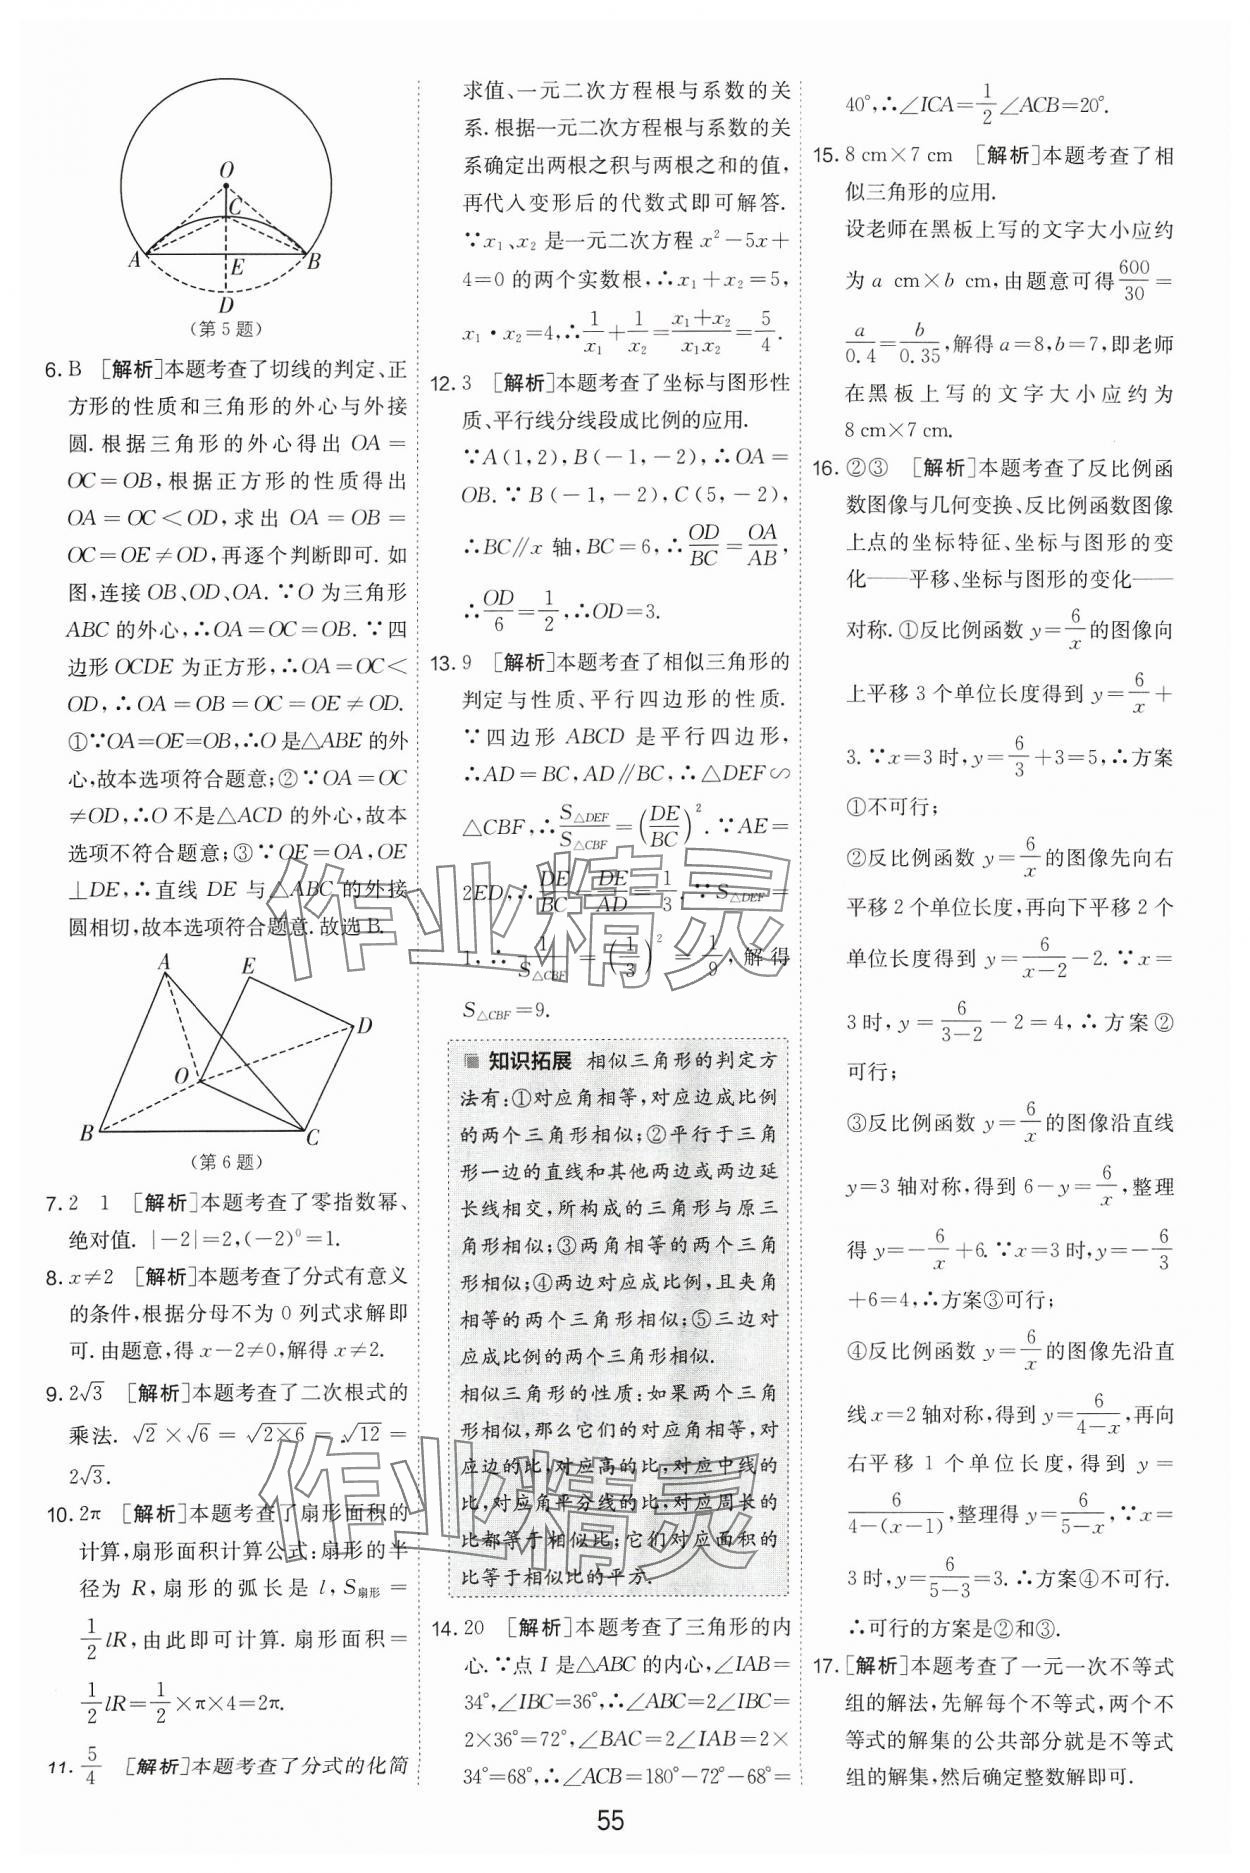 O
C
A
E
B
D
(第5题)
6. B [解析]本题考查了切线的判定、正
方形的性质和三角形的外心与外接
圆.根据三角形的外心得出 OA=
OC=OB,根据正方形的性质得出
OA=OC<OD,求出 OA=OB=
OC=OE≠OD,再逐个判断即可.如
图,连接OB、OD、OA.∵O为三角形
ABC的外心,∴OA=OC=OB.∵四
边形OCDE为正方形,∴OA=OC<
OD,∴OA=OB=OC=OE≠OD.
①∵OA=OE=OB,∴O是△ABE的外
心,故本选项符合题意;②∵OA=OC
≠OD,∴O不是△ACD的外心,故本
选项不符合题意;③∵OE=OA,OE
⊥DE,∴直线DE与△ABC的外接
圆相切,故本选项符合题意.故选B.
A
E
D
O
B
C
(第6题)
7. 2 1 [解析]本题考查了零指数幂、
绝对值. |-2|=2,(-2)⁰=1.
8. x≠2 [解析]本题考查了分式有意义
的条件,根据分母不为0列式求解即
可.由题意,得x-2≠0,解得x≠2.
9. 2√3 [解析]本题考查了二次根式的
乘法. √2×√6=√(2×6)=√12=
2√3.
10. 2π [解析]本题考查了扇形面积的
计算,扇形面积计算公式:扇形的半
径为R,扇形的弧长是l,S扇形=
1/2 lR,由此即可计算.扇形面积=
1/2 lR=1/2×π×4=2π.
11. 5/4 [解析]本题考查了分式的化简
求值、一元二次方程根与系数的关
系.根据一元二次方程根与系数的关
系确定出两根之积与两根之和的值,
再代入变形后的代数式即可解答.
∵x₁、x₂是一元二次方程x²-5x+
4=0的两个实数根,∴x₁+x₂=5,
x₁·x₂=4,∴1/x₁+1/x₂=(x₁+x₂)/(x₁x₂)=5/4.
12. 3 [解析]本题考查了坐标与图形性
质、平行线分线段成比例的应用.
∵A(1,2),B(-1,-2),∴OA=
OB.∵B(-1,-2),C(5,-2),
∴BC∥x轴,BC=6,∴OD/BC=OA/AB,
∴OD/6=1/2,∴OD=3.
13. 9 [解析]本题考查了相似三角形的
判定与性质、平行四边形的性质.
∵四边形ABCD是平行四边形,
∴AD=BC,AD∥BC,∴△DEF∽
△CBF,∴S△DEF/S△CBF=(DE/BC)².∵AE=
2ED,∴DE/BC=DE/AD=1/3.∵S△DEF=
1,∴1/S△CBF=(1/3)²=1/9,解得
S△CBF=9.
知识拓展 相似三角形的判定方
法有:①对应角相等,对应边成比例
的两个三角形相似;②平行于三角
形一边的直线和其他两边或两边延
长线相交,所构成的三角形与原三
角形相似;③两角相等的两个三角
形相似;④两边对应成比例,且夹角
相等的两个三角形相似;⑤三边对
应成比例的两个三角形相似.
相似三角形的性质:如果两个三角
形相似,那么它们的对应角相等,对
应边的比,对应高的比,对应中线的
比,对应角平分线的比,对应周长的
比都等于相似比;它们对应面积的
比等于相似比的平方.
14. 20 [解析]本题考查了三角形的内
心.∵点I是△ABC的内心,∠IAB=
34°,∠IBC=36°,∴∠ABC=2∠IBC=
2×36°=72°,∠BAC=2∠IAB=2×
34°=68°,∴∠ACB=180°-72°-68°=
40°,∴∠ICA=1/2∠ACB=20°.
15. 8 cm×7 cm [解析]本题考查了相
似三角形的应用.
设老师在黑板上写的文字大小应约
为a cm×b cm,由题意可得600/30=
a/0.4=b/0.35,解得a=8,b=7,即老师
在黑板上写的文字大小应约为
8 cm×7 cm.
16. ②③ [解析]本题考查了反比例函
数图像与几何变换、反比例函数图像
上点的坐标特征、坐标与图形的变
化——平移、坐标与图形的变化——
对称.①反比例函数y=6/x的图像向
上平移3个单位长度得到y=6/x+
3.∵x=3时,y=6/3+3=5,∴方案
①不可行;
②反比例函数y=6/x的图像先向右
平移2个单位长度,再向下平移2个
单位长度得到y=6/(x-2)-2.∵x=
3时,y=6/(3-2)-2=4,∴方案②
可行;
③反比例函数y=6/x的图像沿直线
y=3轴对称,得到6-y=6/x,整理
得y=-6/x+6.∵x=3时,y=-6/3
+6=4,∴方案③可行;
④反比例函数y=6/x的图像先沿直
线x=2轴对称,得到y=6/(4-x),再向
右平移1个单位长度,得到y=
6/(4-(x-1)),整理得y=6/(5-x),∵x=
3时,y=6/(5-3)=3.∴方案④不可行.
∴可行的方案是②和③.
17. [解析]本题考查了一元一次不等式
组的解法,先解每个不等式,两个不
等式的解集的公共部分就是不等式
组的解集,然后确定整数解即可.
作业精灵
作业精灵
55